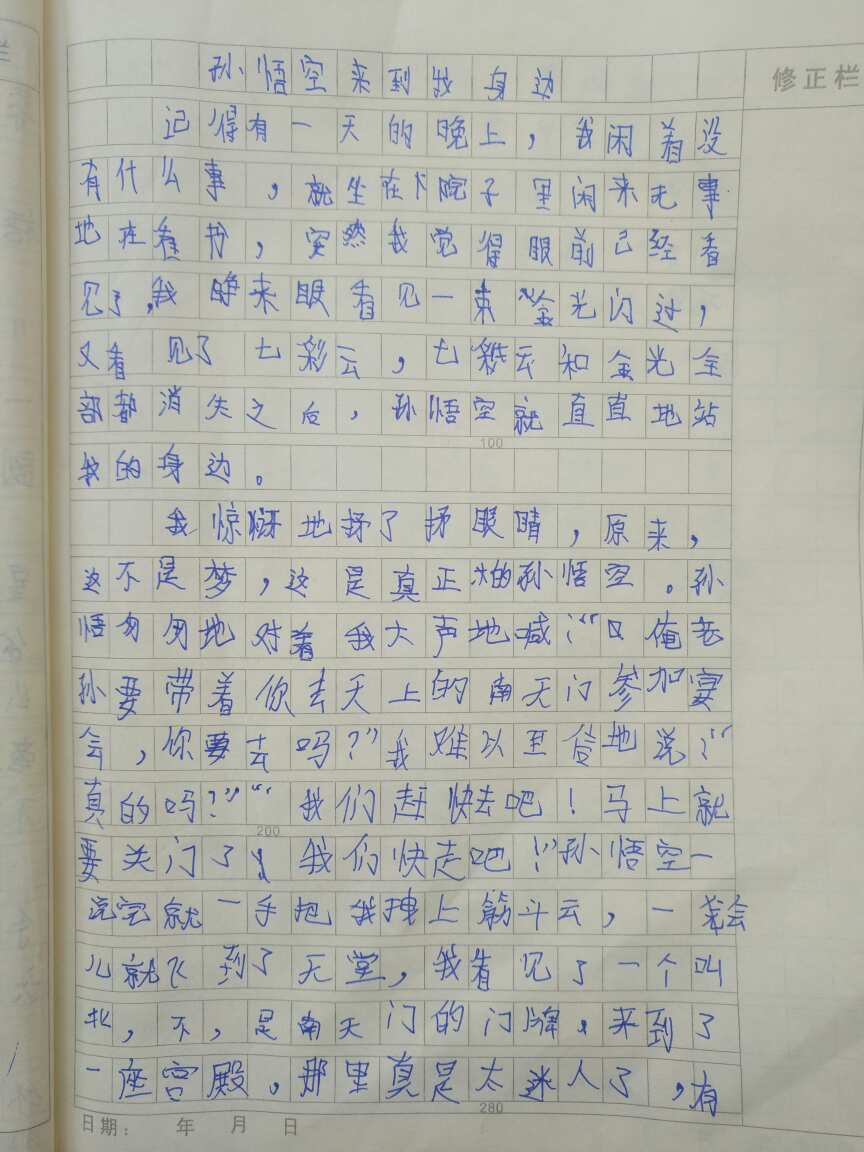 孙悟空来到我身边
修正栏
记得有一天的晚上，我闲着没
有什么事，就坐在院子里闲来无事
地在看书，突然我觉得眼前已经看
见了，我睁来眼看见一束金光闪过，
又看见了七彩云，七彩云和金光全
部都消失之后，孙悟空就直直地站
100
我的身边。
我惊讶地揉了揉眼睛，原来，
这不是梦，这是真正的孙悟空。孙
悟匆匆地对着我大声地喊：“俺老
孙要带着你去天上的南天门参加宴
会，你要去吗？”我难以至信地说：“
真的吗？”“我们赶快去吧！马上就
200
要关门了，我们快走吧！”孙悟空一
说完就一手把我拽上筋斗云，一会
儿就飞到了天堂，我看见了一个叫
北，不，是南天门的门牌，来到了
一座宫殿，那里真是太迷人了，有
280
日期： 年 月 日